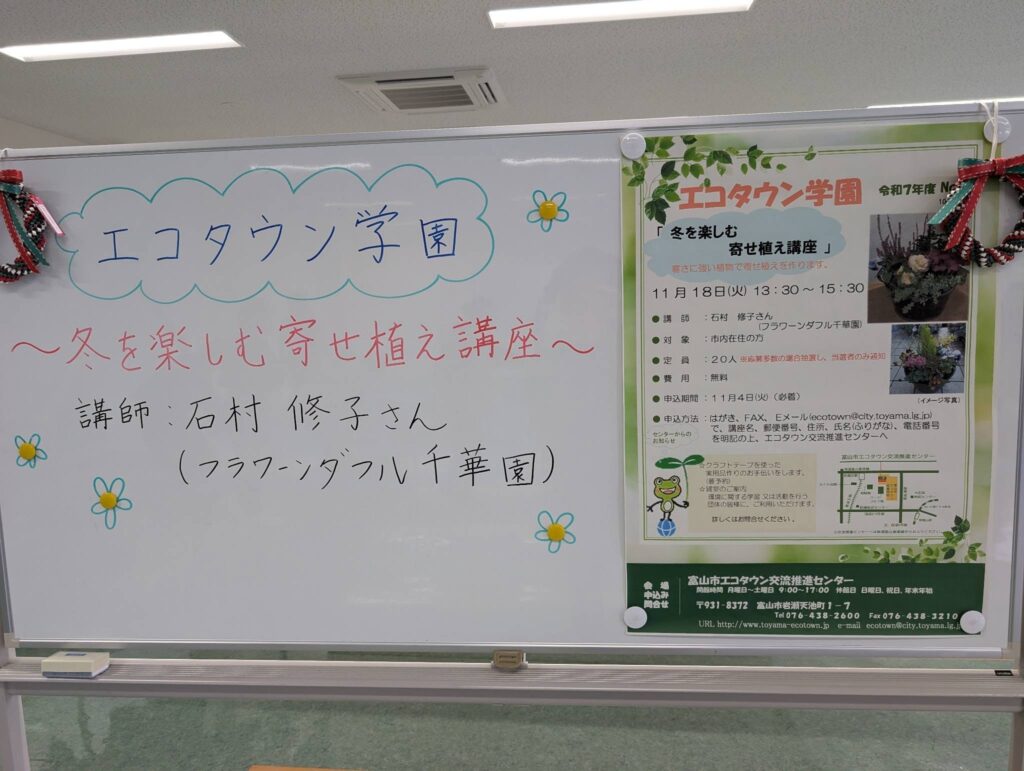 エコタウン学園
～冬を楽しむ寄せ植え講座～
講師：石村 修子さん
（フラワーンダフル千華園）
エコタウン学園 令和7年度
「冬を楽しむ
寄せ植え講座」
寒さに強い植物で寄せ植えを作ります。
11月18日(火) 13：30～15：30
● 講師：石村 修子さん
（フラワーンダフル千華園）
● 対象：市内在住の方
● 定員：20人 ※応募多数の場合抽選し、当選者のみ通知
● 費用：無料
● 申込期間：11月4日(火)（必着）
● 申込方法：はがき、FAX、Eメール(ecotown@city.toyama.lg.jp)
で、講座名、郵便番号、住所、氏名(ふりがな)、電話番号
を明記の上、エコタウン交流推進センターへ
（イメージ写真）
センターからの
お知らせ
☆クラフトテープを使った
実用品作りのお手伝いをします。
(要予約)
☆視察のご案内
環境に関する学習又は活動を行う
団体の皆様に、ご利用いただけます。
詳しくはお問合せください。
富山市エコタウン交流推進センター
会場
申込み
問合せ
富山市エコタウン交流推進センター
開館時間 月曜日～土曜日 9:00～17:00 休館日 日曜日、祝日、年末年始
〒931-8372 富山市岩瀬天池町1-7
Tel 076-438-2600 Fax 076-438-3210
URL http://www.toyama-ecotown.jp e-mail ecotown@city.toyama.lg.j